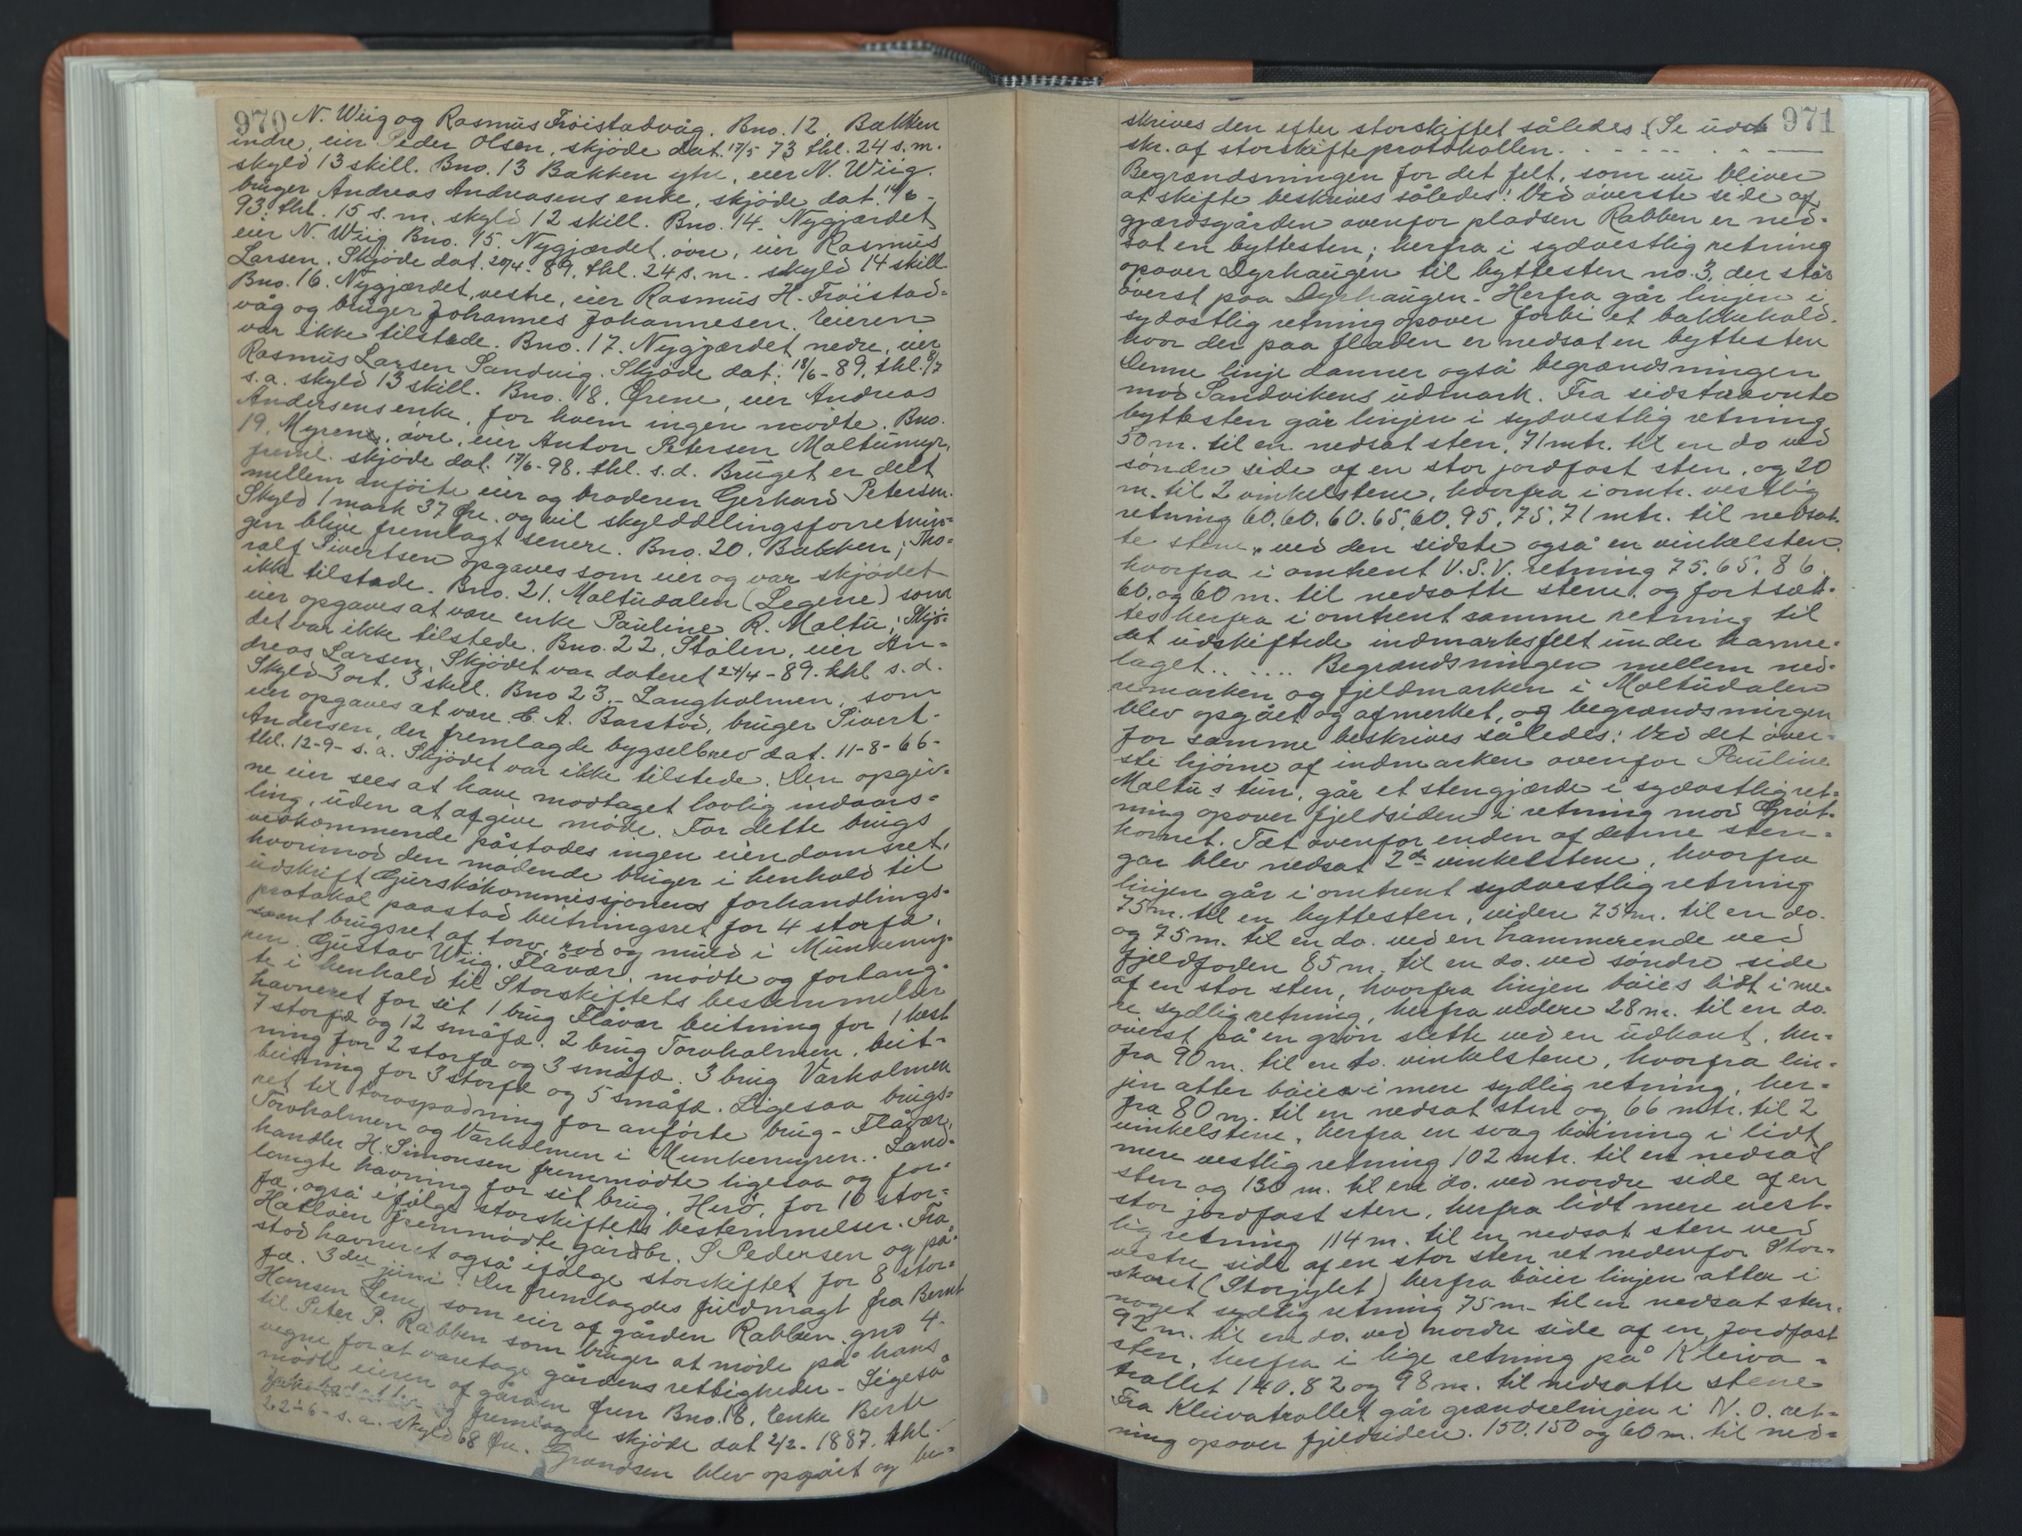 970 N. Wiig og Rasmus Frøistadvåg. Bno. 12. Bakken
indre, eier Peder Olsen, skjøde dat. 17/5 73 thl. 24 s.m.
skyld 13 skill. Bno. 13 Bakken ytre, eier N. Wiig.
bruger Andreas Andreasens enke, skjøde dat. 14/6 -
93. thl. 15 s. m. skyld 12 skill. Bno. 14. Nygjærdet
eier N. Wiig Bno. 15. Nygjærdet, øvre, eier Rasmus
Larsen. Skjøde dat. 27/4 - 89. thl. 24 s. m. skyld 14 skill
Bno. 16. Nygjærdet, vestre, eier Rasmus H. Frøistad-
våg og bruger Johannes Johannesen. Eieren
var ikke tilstede. Bno. 17. Nygjærdet nedre, eier
Rasmus Larsen Sandvig. Skjøde dat. 18/6 - 89. thl. 8/7
s. a. skyld 13 skill. Bno. 18. Ørene, eier Andreas
Andersens enke, for hvem ingen mødte. Bno.
19. Myrene, øvre, eier Anton Petersen Maltumyr,
freml. skjøde dat. 17/6 - 98. thl. s. d. Bruget er delt
mellem anførte eier og broderen Gerhard Petersen.
Skyld 1 mark 37 Øre. og vil skylddelingsforretnin-
gen blive fremlagt senere. Bno. 20. Bakken; Tho-
ralf Sivertsen opgaves som eier og var skjødet
ikke tilstede. Bno. 21. Maltudalen (Legene) som
eier opgaves at være enke Pauline R. Maltu; Skjø-
det var ikke tilstede. Bno. 22. Stølen, eier An-
dreas Larsen. Skjødet var dateret 24/4 - 89. thl s. d.
Skyld 3 ort. 3 skill. Bno 23. Langholmen, som
eier opgaves at være E. A. Barstad, bruger Sivert
Andersen, der fremlagde bygselbrev dat. 11-8-66-
thl. 12-9- s. a. Skjødet var ikke tilstede. Den opgiv-
ne eier sees at have modtaget lovlig indvars-
ling, uden at afgive møde. For dette brugs
vedkommende påstodes ingen eiendomsret,
hvorimod den mødende bruger i henhold til
udskrift Gurskøkommissjonens forhandlings-
protokol paastod beitningsret for 4 storfæ,
samt brugsret af torv, rod og muld i Munkemy-
ren. Gustav Wiig, Flåvær, mødte og forlang-
te i henhold til Storskiftets bestemmelser
havneret for sit 1 brug Flåvær beitning for 1 hest
7 storfæ og 12 småfæ. 2 brug Torvholmen, beit-
ning for 2 storfæ og 3 småfæ. 3 brug Varholmen
beitning for 3 storfæ og 5 småfæ. Ligesaa brugs-
ret til torvspadning for anførte brug - Flåvær,
Torvholmen og Varholmen i Munkemyren. Land-
handler H. Simonsen fremmødte ligesaa og for-
langte havning for sit brug, Herø, for 10 stor-
fæ, også ifølge storskiftets bestemmelser. Fra
Hatløen fremmødte gårdbr. S Pedersen og på-
stod havneret også ifølge storskiftet for 8 stor-
fæ. 3die juni. Der fremlagdes fuldmagt fra Bernt
Hansen Lene, som eier af gården Rabben gno 4.
til Peter P. Rabben som bruger at møde på hans
vegne for at varetage gårdens rettigheder - Ligeså
mødte eieren af gården Bno. 18, Enke Berte
Jakobsdatter og fremlagde skjøde dat 2/2 - 1887. thl.
22-6- s. a. skyld 68 Øre. Grændsen blev opgået og be-
971
skrives den efter storskiftet således (Se udst
skr. af storskifteprotokollen. - - - - -
Begrændsningen for det felt, som nu bliver
at skifte beskrives således: Ved øverste side af
gjærdsgården ovenfor pladsen Rabben er ned-
sat en byttesten; herfra i sydvestlig retning
opover Dyrhaugen til byttesten no. 3, der står
øverst paa Dyrhaugen - Herfra går linjen i
sydostlig retning opover forbi et bakkehold,
hvor der paa fladen er nedsat en byttesten
Denne linje danner også begrændsningen
mod Sandvikens udmark. Fra sidstnævnte
byttesten går linjen i sydvestlig retning
50 m. til en nedsat sten, 71 mtr. til en do ved
søndre side af en stor jordfast sten, og 20
m. til 2 vinkelstene, hvorfra i omtr. vestlig
retning 60. 60. 60. 65. 60. 95. 75. 71 mtr. til nedsat-
te stene, ved den sidste også en vinkelsten,
hvorfra i omtrent V.S.V. retning 75. 65. 86.
60. og 60 m. til nedsatte stene, og fortsæt-
tes herfra i omtrent samme retning til
det udskiftede indmarksfelt under hamre-
laget. . . . . . Begrændsningen mellem ned-
remarken og fjeldmarken i Maltudalen
blev opgået og afmerket, og begrændsningen
for samme beskrives således: Ved det øver-
ste hjørne af indmarken ovenfor Pauline
Maltus tun, går et stengjærde i sydostlig ret-
ning opover fjeldsiden i retning mod Grøt-
hornet. Tæt ovenfor enden af denne sten-
gar blev nedsat 2de vinkelstene, hvorfra
linjen går i omtrent sydvestlig retning
75 m. til en byttesten, videre 75 m. til en do.
og 75 m. til en do. ved en hammerende ved
fjeldfoden 85 m. til en do. ved søndre side
af en stor sten, hvorfra linjen bøies lidt i me-
re sydlig retning, herfra videre 28 m. til en do.
øverst på en grøn slette ved en udkant, her-
fra 90 m. til en do. vinkelstene, hvorfra lin-
jen atter bøies i mere sydlig retning, her-
fra 80 m. til en nedsat sten og 66 mtr. til 2
vinkelstene, herfra en svag bøining i lidt
mere vestlig retning 102 mtr. til en nedsat
sten og 130 m. til en do. ved nordre side af en
stor jordfast sten, herfra lidt mere vest-
lig retning 114 m. til en nedsat sten ved
vestre side af en stor sten ret nedenfor Stor-
skaret (Storjylet) herfra bøier linjen atter i
noget sydlig retning 75 m. til en nedsat sten.
92 m. til en do. ved nordre side af en jordfast
sten, herfra i lige retning på Kleiva-
trollet 140. 82 og 98 m. til nedsatte stene
Fra Kleivatrollet går grændselinjen i N. O. ret-
ning opover fjeldsiden. 150. 150 og 60 m. til ned-